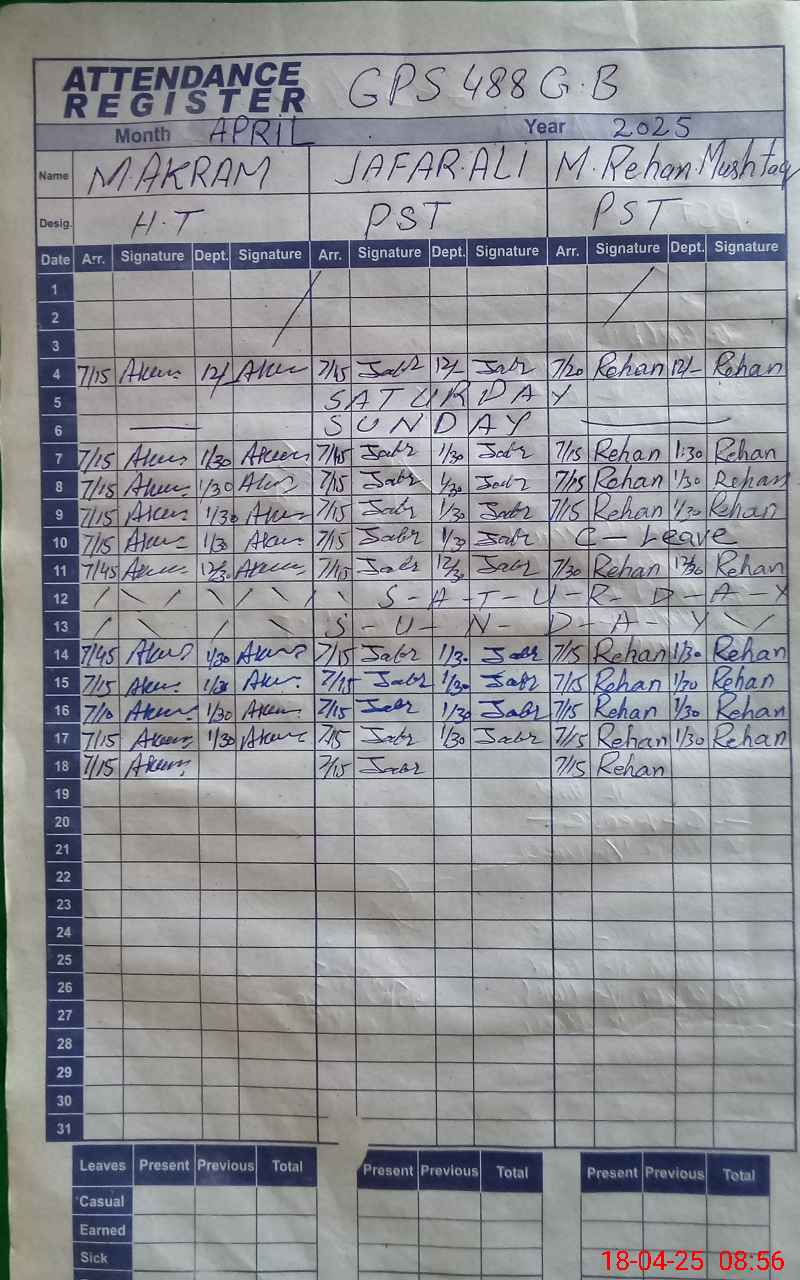 ATTENDANCE REGISTER GPS 488 G.B
Month APRIL Year 2025
Name M.AKRAM JAFAR.ALI M.Rehan.Mushtaq
Desig. H.T PST PST
Date Arr. Signature Dept. Signature Arr. Signature Dept. Signature Arr. Signature Dept. Signature
1
2
3
4 7/15 Akram 12/- Akram 7/15 Jafr 12/- Jafr 7/20 Rehan 12/- Rehan
5 SATURDAY
6 SUNDAY
7 7/15 Akram 1/30 Akram 7/45 Jafr 1/30 Jafr 7/15 Rehan 1:30 Rehan
8 7/15 Akram 1/30 Akram 7/15 Jafr 1/30 Jafr 7/15 Rehan 1/30 Rehan
9 7/15 Akram 1/30 Akram 7/15 Jafr 1/30 Jafr 7/15 Rehan 1/30 Rehan
10 7/15 Akram 1/30 Akram 7/15 Jafr 1/30 Jafr C - Leave
11 7/45 Akram 12/30 Akram 7/15 Jafr 12/30 Jafr 7/30 Rehan 12/30 Rehan
12 S-A-T-U-R-D-A-Y
13 S-U-N-D-A-Y
14 7/45 Akram 1/30 Akram 7/15 Jafr 1/30 Jafr 7/15 Rehan 1/30 Rehan
15 7/15 Akram 1/30 Akram 7/15 Jafr 1/30 Jafr 7/15 Rehan 1/30 Rehan
16 7/10 Akram 1/30 Akram 7/15 Jafr 1/30 Jafr 7/15 Rehan 1/30 Rehan
17 7/15 Akram 1/30 Akram 7/15 Jafr 1/30 Jafr 7/15 Rehan 1/30 Rehan
18 7/15 Akram 7/15 Jafr 7/15 Rehan
19
20
21
22
23
24
25
26
27
28
29
30
31
Leaves Present Previous Total Present Previous Total Present Previous Total
Casual
Earned
Sick
18-04-25 08:56